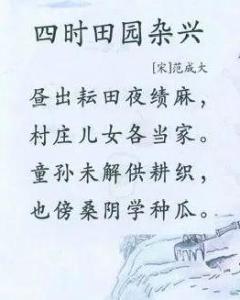 四时田园杂兴
[宋]范成大
昼出耘田夜绩麻，
村庄儿女各当家。
童孙未解供耕织，
也傍桑阴学种瓜。